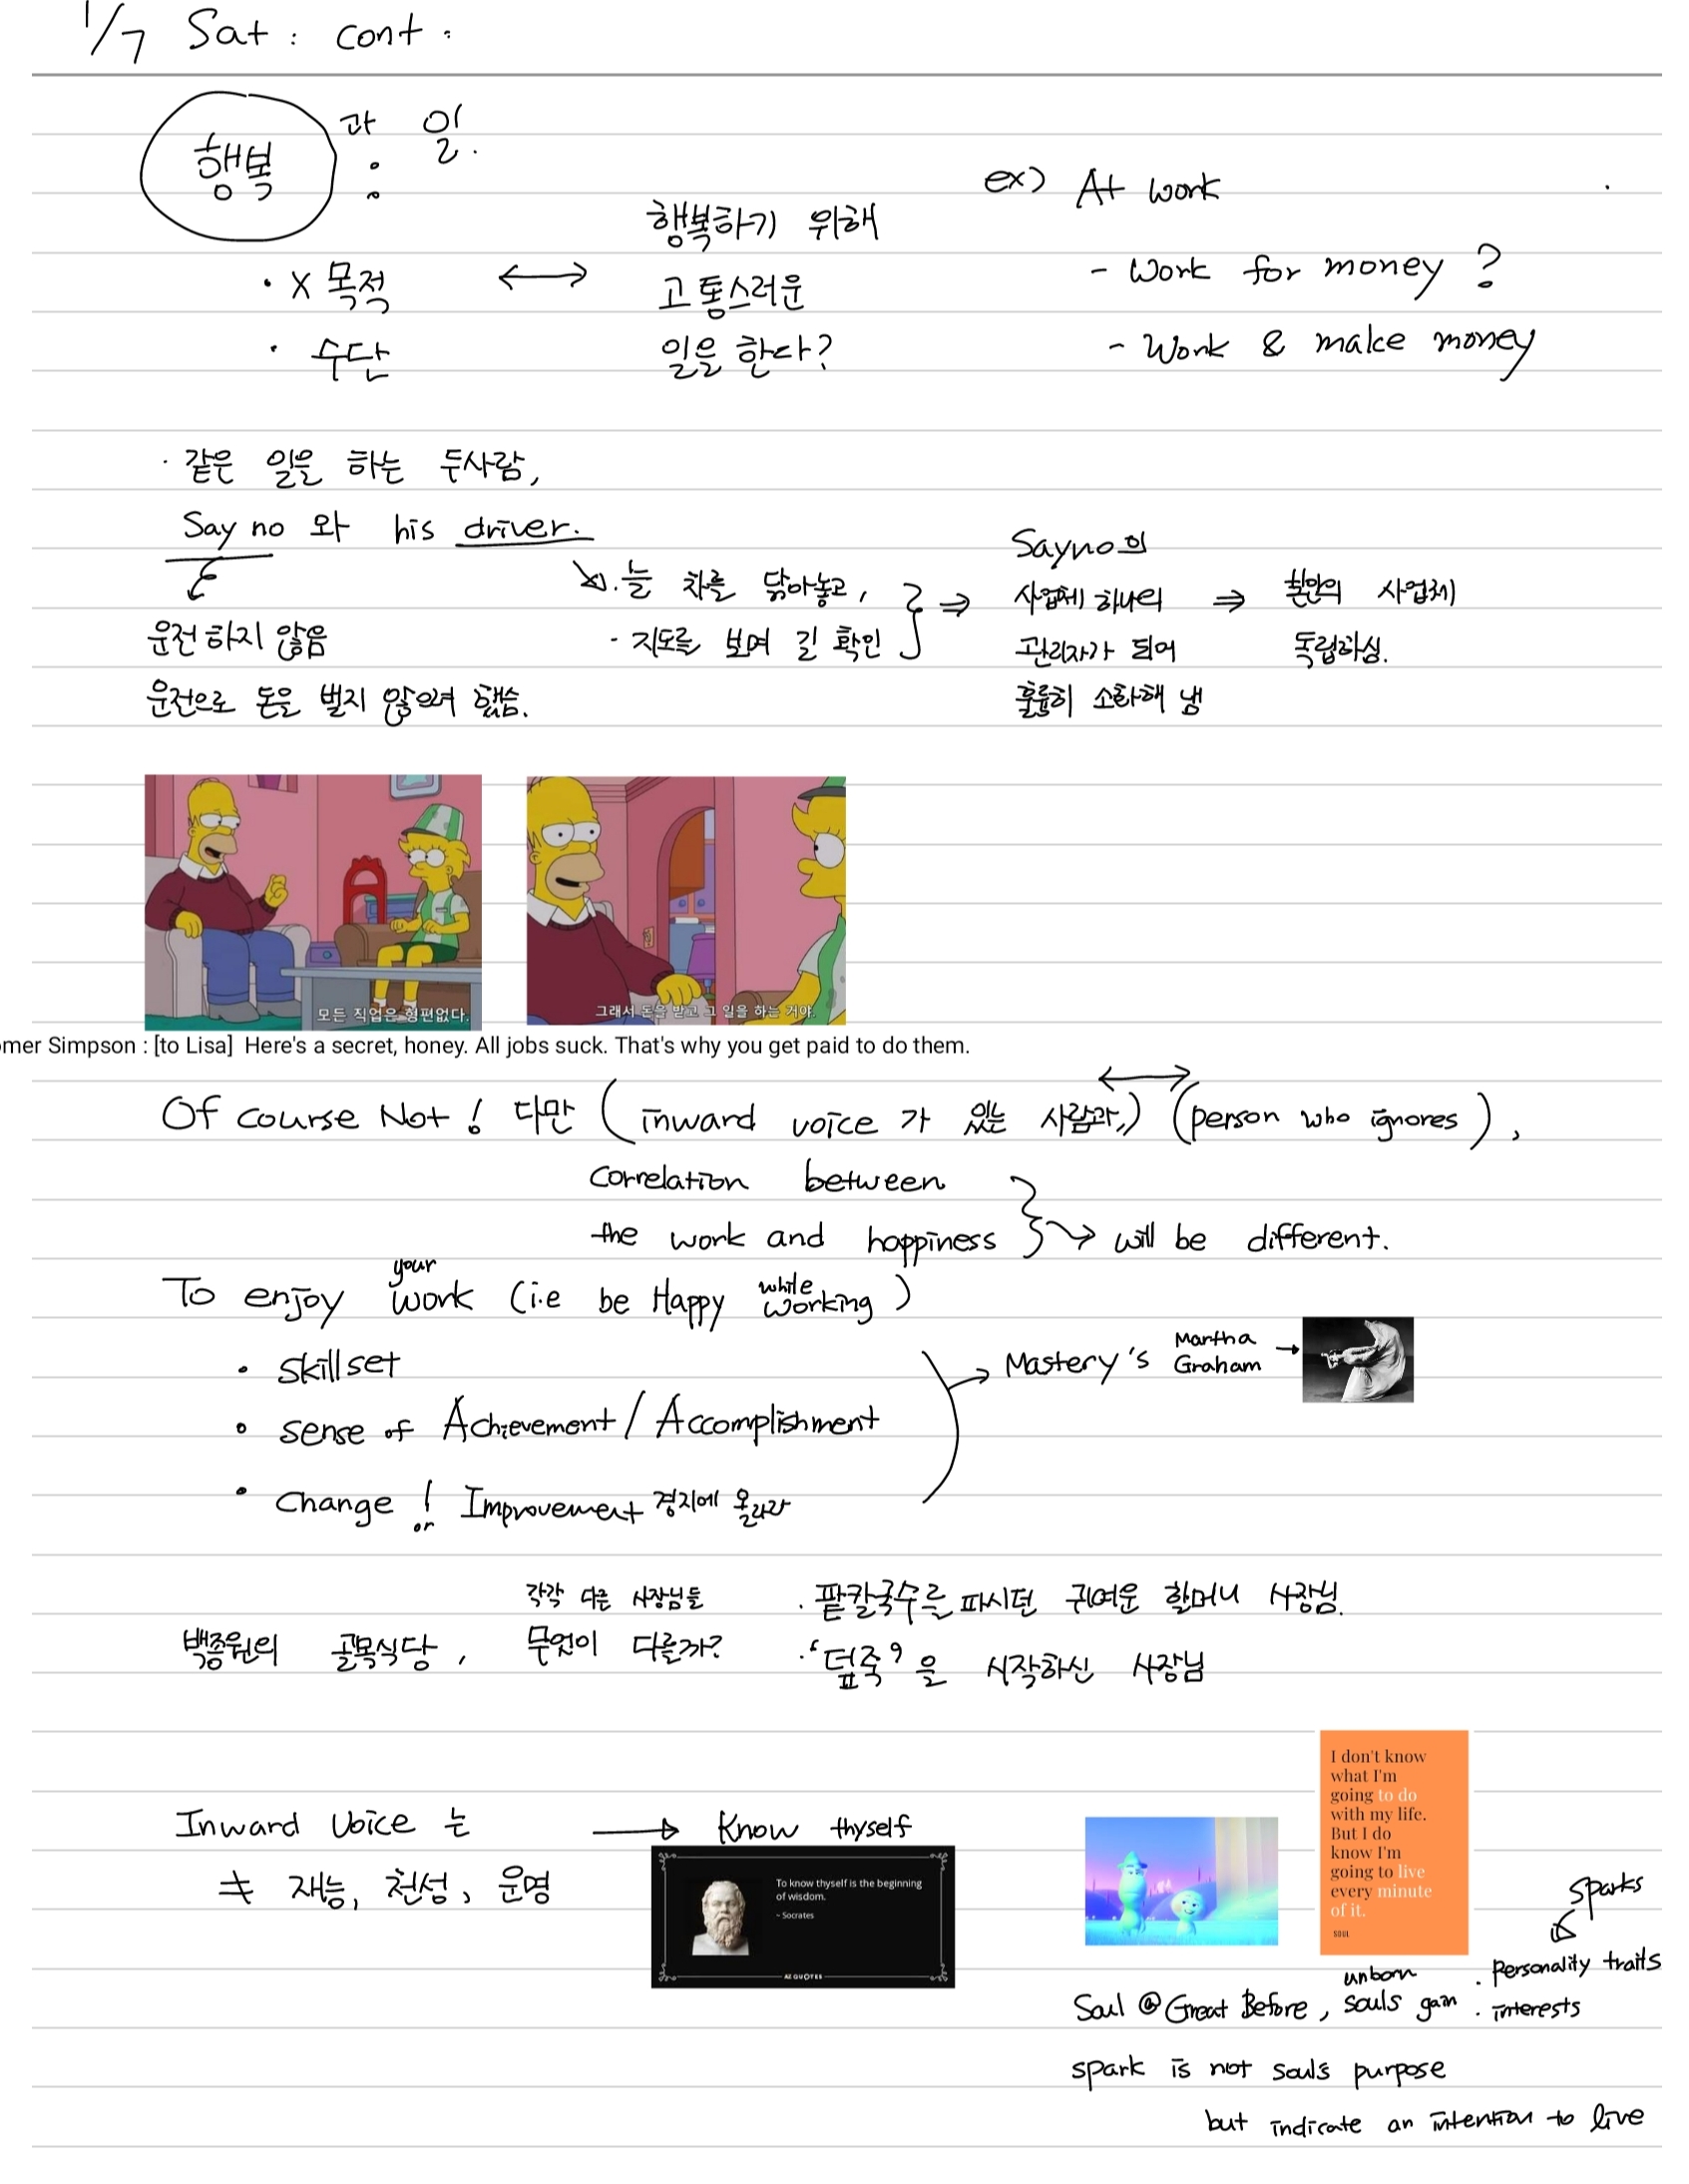 1/7 Sat : cont :
행복 과 일.
:
· X 목적 ↔ 행복하기 위해
· 수단 고통스러운
일을 한다?
ex) At work
- Work for money ?
- Work & make money
· 같은 일을 하는 두사람,
Say no 와 his driver.
운전하지 않음
운전으로 돈은 벌지 않으려 했음.
· 늘 차를 닦아놓고,
· 지도를 보며 길 확인
⇒ Sayno의
사업체 하나의
관리자가 되어
훌륭히 소화해 냄
⇒ 본인의 사업체
독립하심.
모든 직업은 형편없다.
그래서 돈을 받고 그 일을 하는 거야.
omer Simpson : [to Lisa] Here's a secret, honey. All jobs suck. That's why you get paid to do them.
Of course Not ! 다만 ( inward voice 가 있는 사람과,,) ↔ (person who ignores ) ,
correlation between
the work and happiness } → will be different.
To enjoy your work (i.e be Happy while working )
• skillset
• sense of Achievement / Accomplishment
• change ! or Improvement 경지에 올라라
→ Mastery's Martha Graham →
백종원의 골목식당 , 각각 다른 사장님들
무엇이 다를까?
· 팥칼국수를 파시던 귀여운 할머니 사장님.
· '덮죽' 을 시작하신 사장님
Inward Voice 는
≠ 재능, 천성, 운명
→ Know thyself
To know thyself is the beginning
of wisdom.
~ Socrates
AZ QUOTES
I don't know
what I'm
going to do
with my life.
But I do
know I'm
going to live
every minute
of it.
SOUL
Soul @ Great Before, unborn souls gain
sparks
· Personality traits
· interests
spark is not soul's purpose
but indicate an intention to live